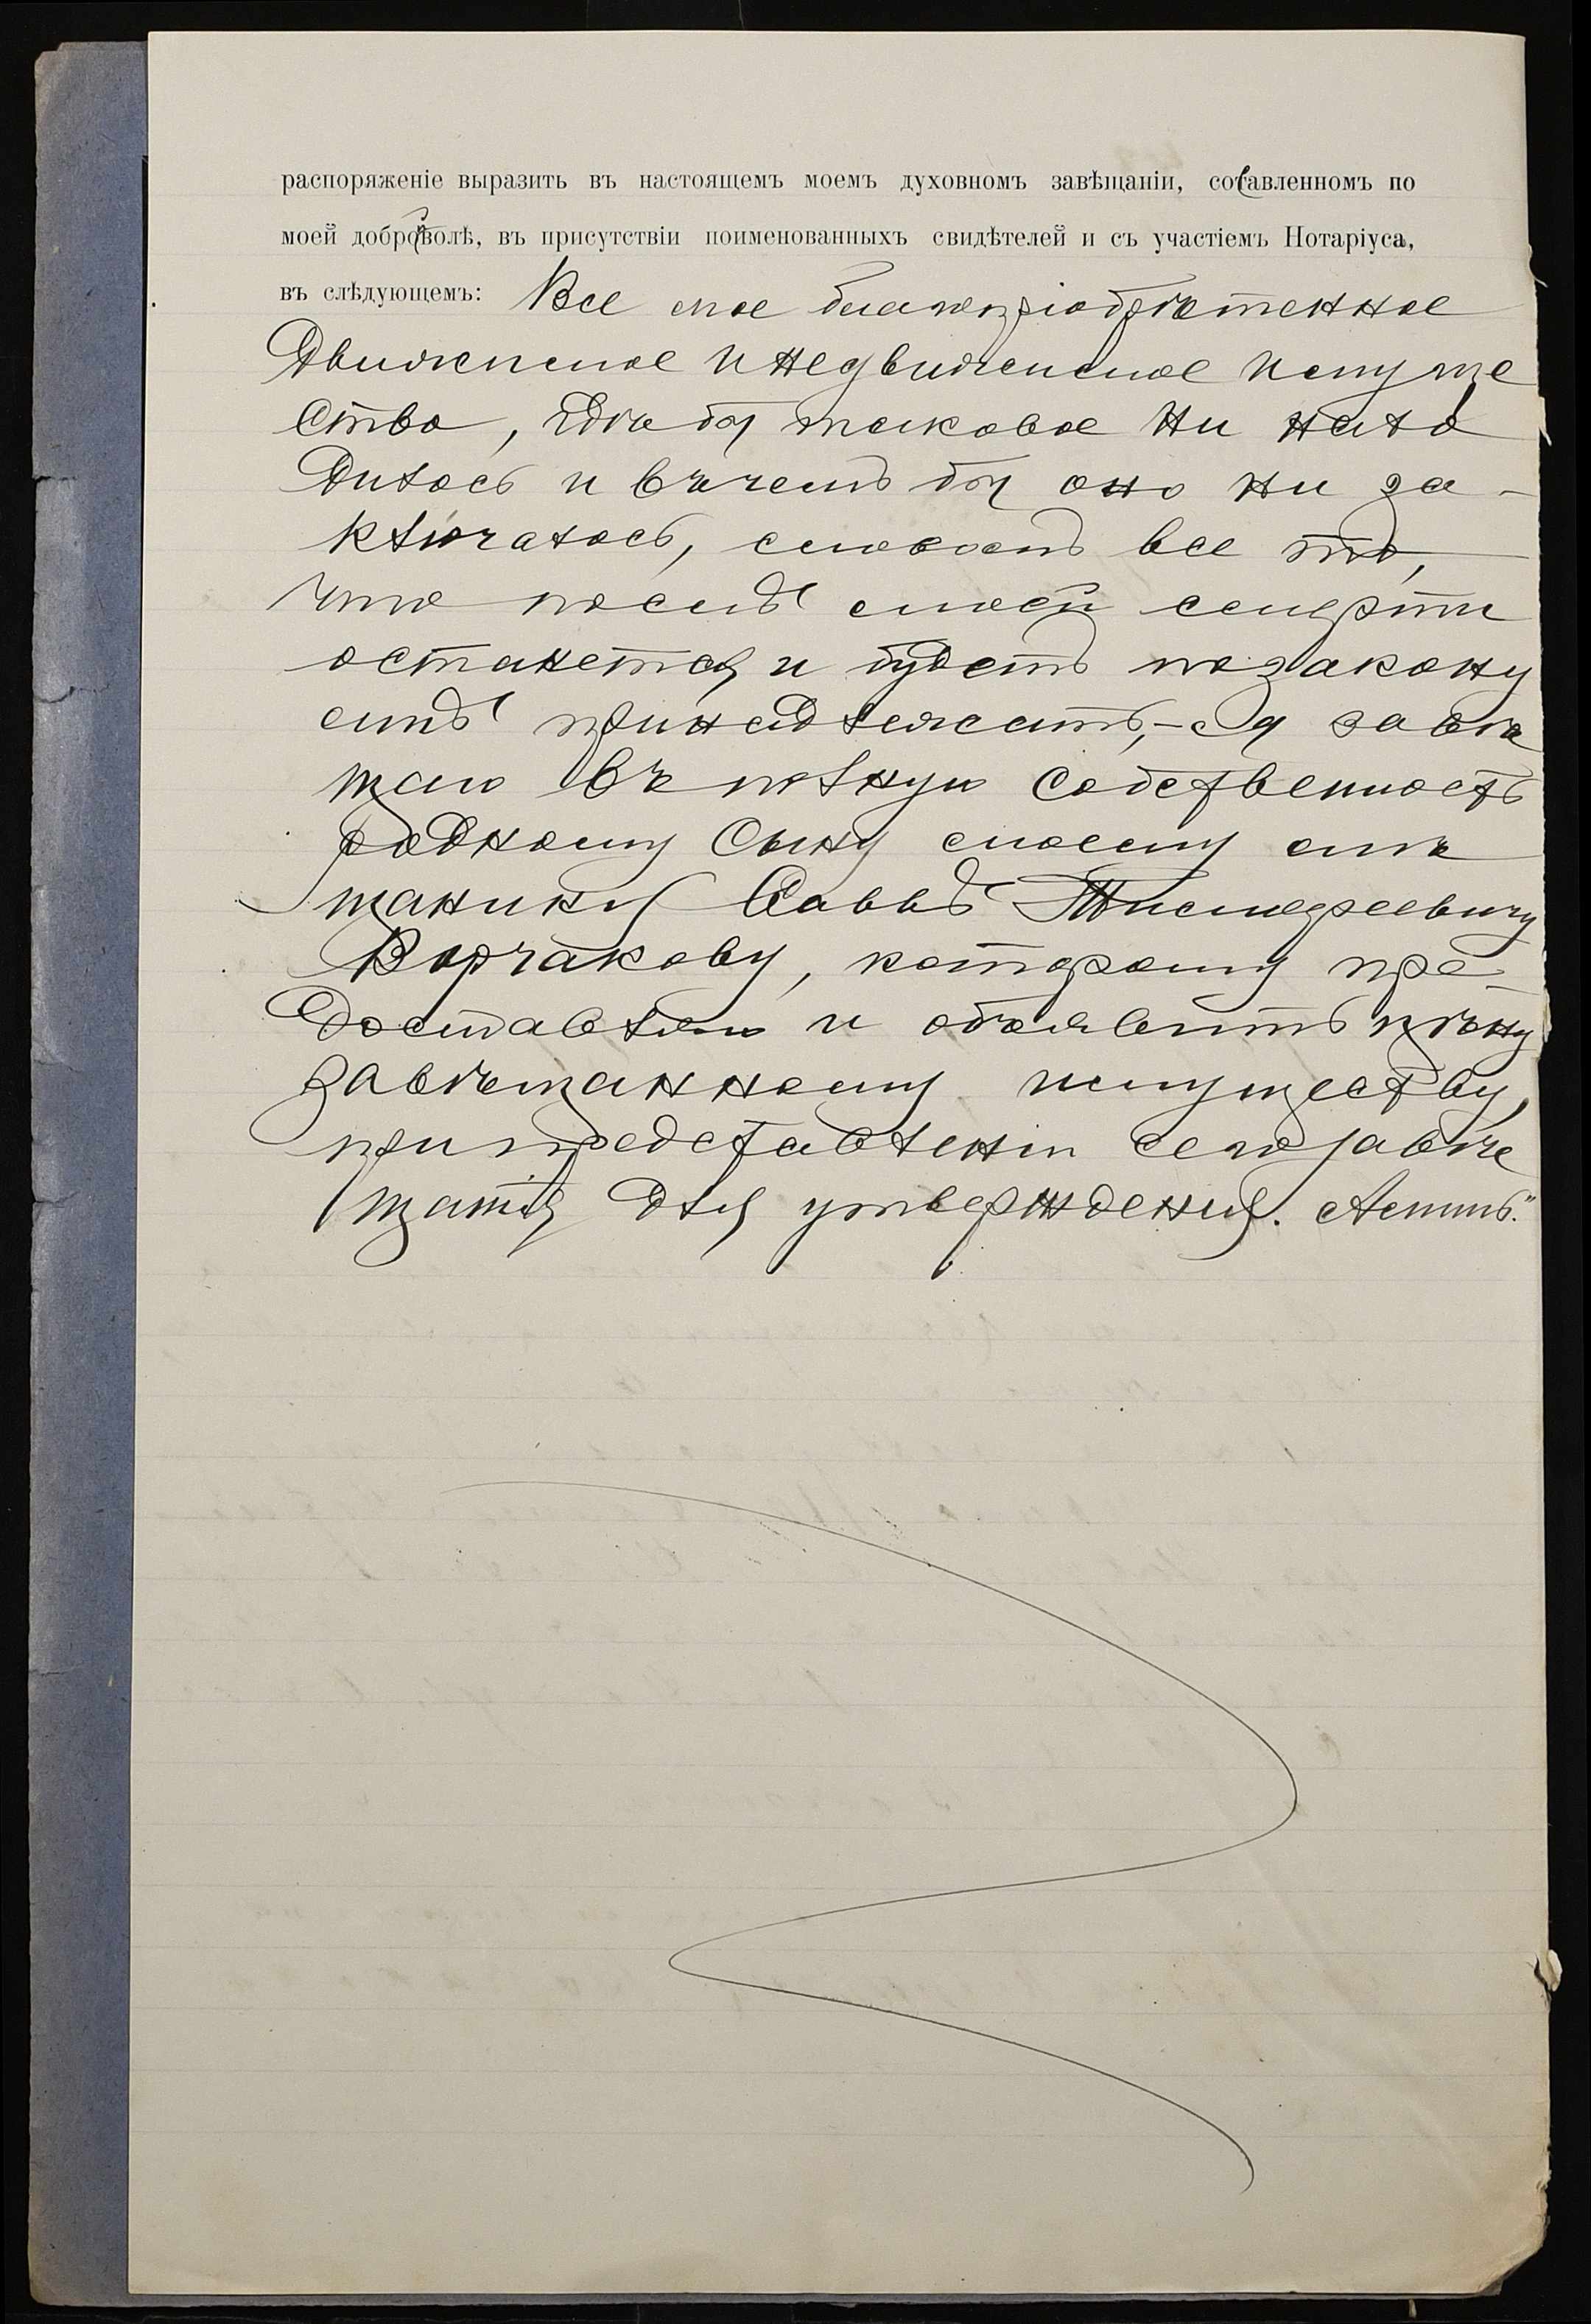 распоряженіе выразить въ настоящемъ моемъ духовномъ завѣщаніи, составленномъ по
моей доброй волѣ, въ присутствіи поименованныхъ свидѣтелей и съ участіемъ Нотаріуса,
въ слѣдующемъ: Все мое благопріобрѣтенное
движимое и недвижимое имуще
ство, гдѣ бы таковое ни нахо
дилось и въ чемъ бы оно ни за-
ключалось, словомъ все то,
что послѣ моей смерти
останется и будетъ по закону
мнѣ принадлежать,- Я завѣ
щаю въ полную собственность
родному сыну моему мѣ
щанину Саввѣ Тимофеевичу
Корчакову, которому пре-
доставляю и объявить цѣну
завѣщанному имуществу,
при представленіи сего завѣ
щанія для утвержденія. Аминь."